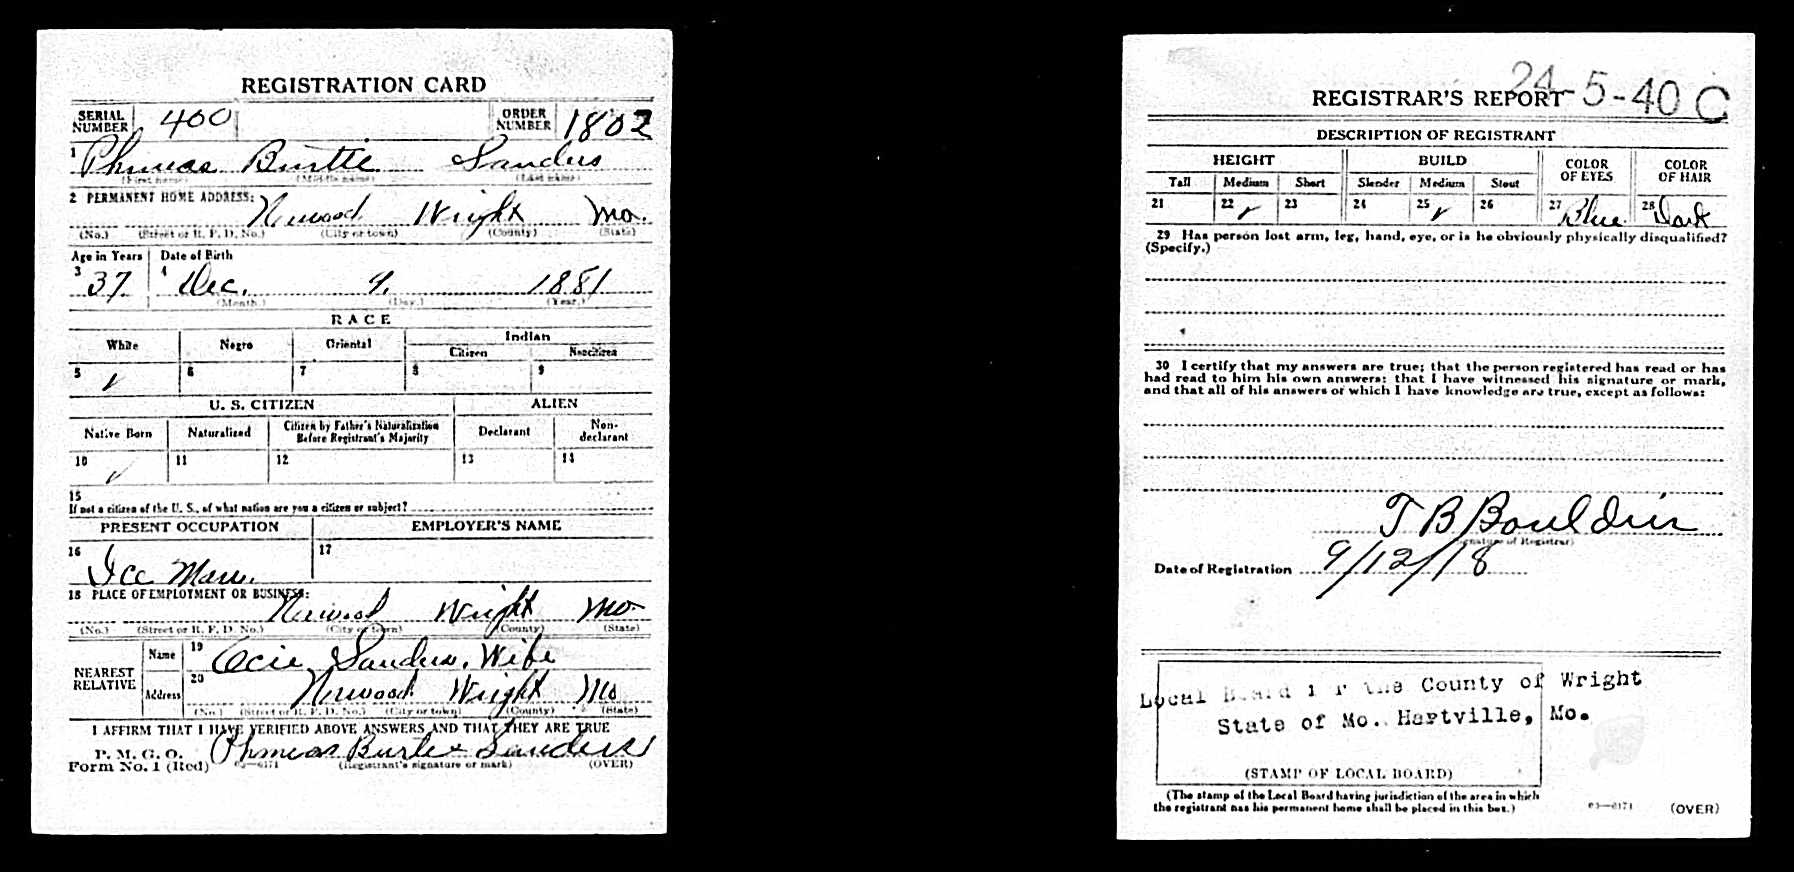 REGISTRATION CARD
SERIAL NUMBER 400 ORDER NUMBER 1802
1 Phineas Burtie Sanders
(First name) (Middle name) (Last name)
2 PERMANENT HOME ADDRESS: Norwood Wright Mo.
(No.) (Street or R. F. D. No.) (City or town) (County) (State)
Age in Years Date of Birth
3 37 4 Dec. 9. 1881
(Month.) (Day.) (Year.)
RACE
White Negro Oriental Indian
Citizen Noncitizen
5 ✓ 6 7 8 9
U. S. CITIZEN ALIEN
Native Born Naturalized Citizen by Father's Naturalization Before Registrant's Majority Declarant Non-declarant
10 ✓ 11 12 13 14
15
If not a citizen of the U. S., of what nation are you a citizen or subject?
PRESENT OCCUPATION EMPLOYER'S NAME
16 Ice Man. 17
18 PLACE OF EMPLOYMENT OR BUSINESS:
Norwood Wright Mo.
(No.) (Street or R. F. D. No.) (City or town) (County) (State)
NEAREST RELATIVE Name 19 Ocie Sanders, Wife
Address 20 Norwood Wright Mo
(No.) (Street or R. F. D. No.) (City or town) (County) (State)
I AFFIRM THAT I HAVE VERIFIED ABOVE ANSWERS AND THAT THEY ARE TRUE
P. M. G. O.
Form No. 1 (Red) 03—6171 Phineas Burtie Sanders
(Registrant's signature or mark) (OVER)
24-5-40 C
REGISTRAR'S REPORT
DESCRIPTION OF REGISTRANT
HEIGHT BUILD COLOR OF EYES COLOR OF HAIR
Tall Medium Short Slender Medium Stout
21 22 ✓ 23 24 25 ✓ 26 27 Blue 28 Dark
29 Has person lost arm, leg, hand, eye, or is he obviously physically disqualified?
(Specify.)
30 I certify that my answers are true; that the person registered has read or has
had read to him his own answers; that I have witnessed his signature or mark,
and that all of his answers of which I have knowledge are true, except as follows:
T B Bouldin
(Signature of Registrar)
Date of Registration 9/12/18
Local Board for the County of Wright
State of Mo. Hartville, Mo.
(STAMP OF LOCAL BOARD)
(The stamp of the Local Board having jurisdiction of the area in which
the registrant has his permanent home shall be placed in this box.)
03—6171 (OVER)